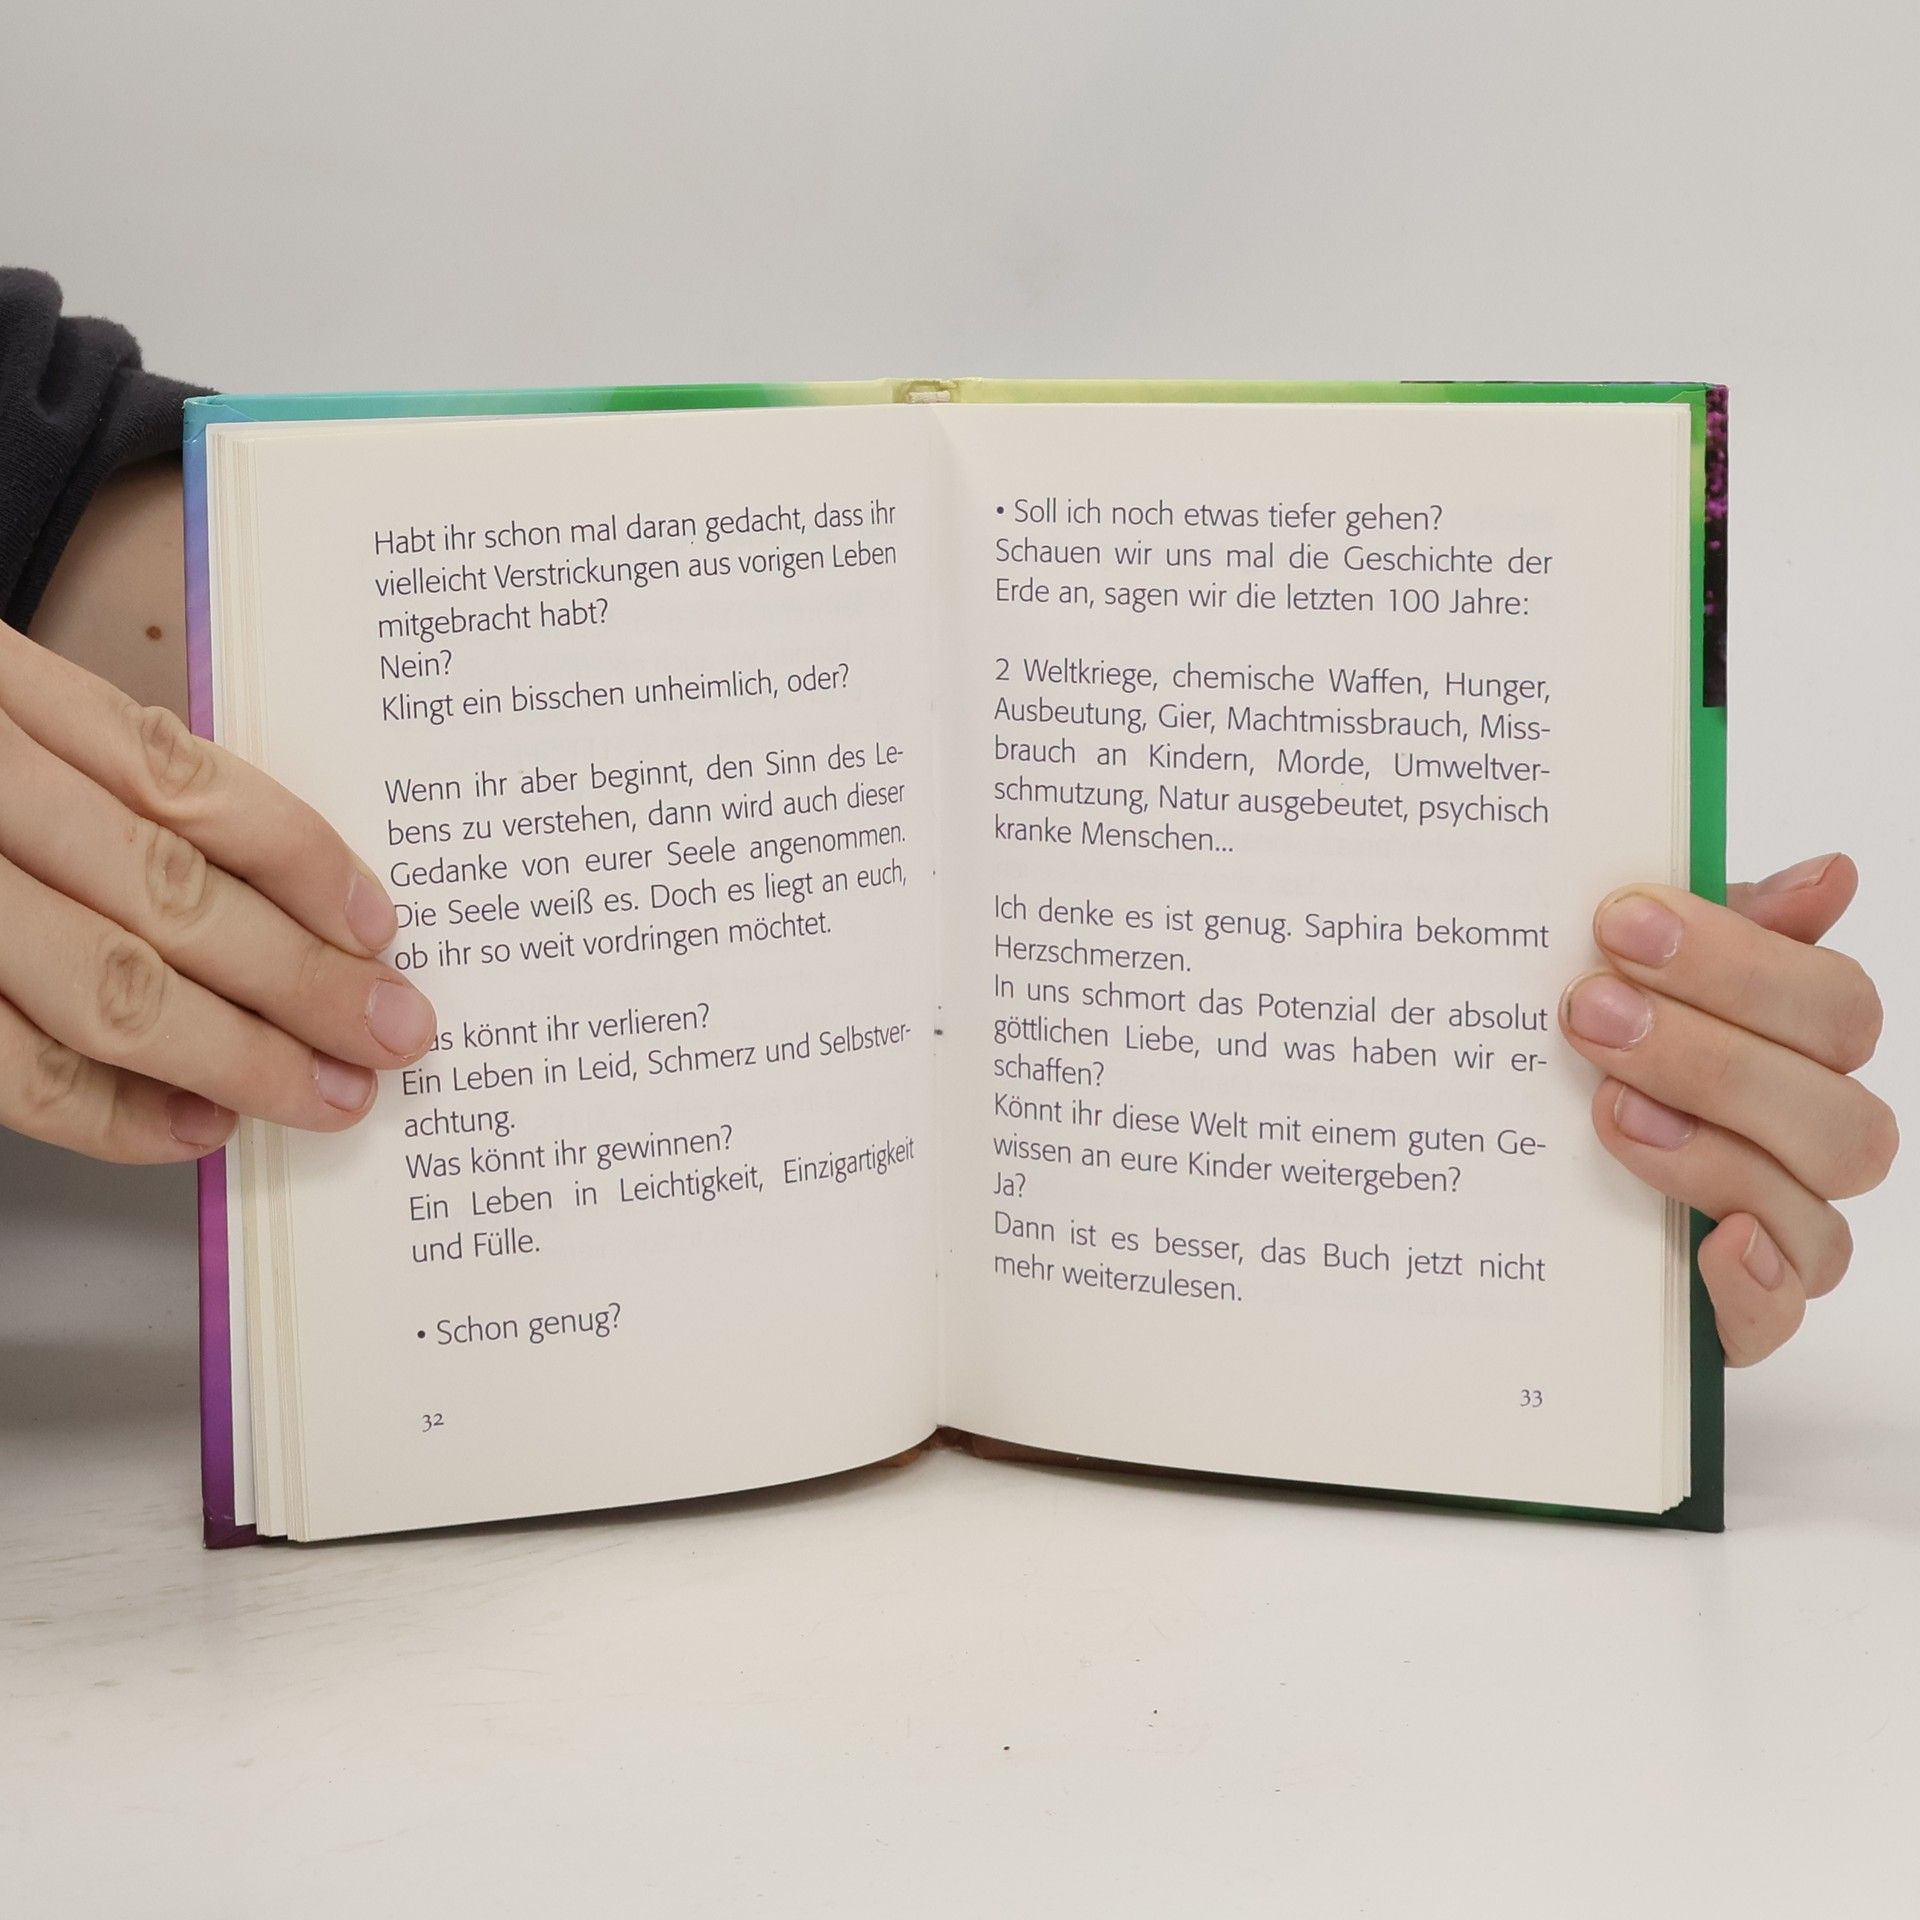 Habt ihr schon mal daran gedacht, dass ihr
vielleicht Verstrickungen aus vorigen Leben
mitgebracht habt?
Nein?
Klingt ein bisschen unheimlich, oder?
Wenn ihr aber beginnt, den Sinn des Le-
bens zu verstehen, dann wird auch dieser
Gedanke von eurer Seele angenommen.
Die Seele weiß es. Doch es liegt an euch,
ob ihr so weit vordringen möchtet.
könnt ihr verlieren?
Ein Leben in Leid, Schmerz und Selbstver-
achtung.
Was könnt ihr gewinnen?
Ein Leben in Leichtigkeit, Einzigartigkeit
und Fülle.
• Schon genug?
32
• Soll ich noch etwas tiefer gehen?
Schauen wir uns mal die Geschichte der
Erde an, sagen wir die letzten 100 Jahre:
2 Weltkriege, chemische Waffen, Hunger,
Ausbeutung, Gier, Machtmissbrauch, Miss-
brauch an Kindern, Morde, Umweltver-
schmutzung, Natur ausgebeutet, psychisch
kranke Menschen...
Ich denke es ist genug. Saphira bekommt
Herzschmerzen.
In uns schmort das Potenzial der absolut
göttlichen Liebe, und was haben wir er-
schaffen?
Könnt ihr diese Welt mit einem guten Ge-
wissen an eure Kinder weitergeben?
Ja?
Dann ist es besser, das Buch jetzt nicht
mehr weiterzulesen.
33